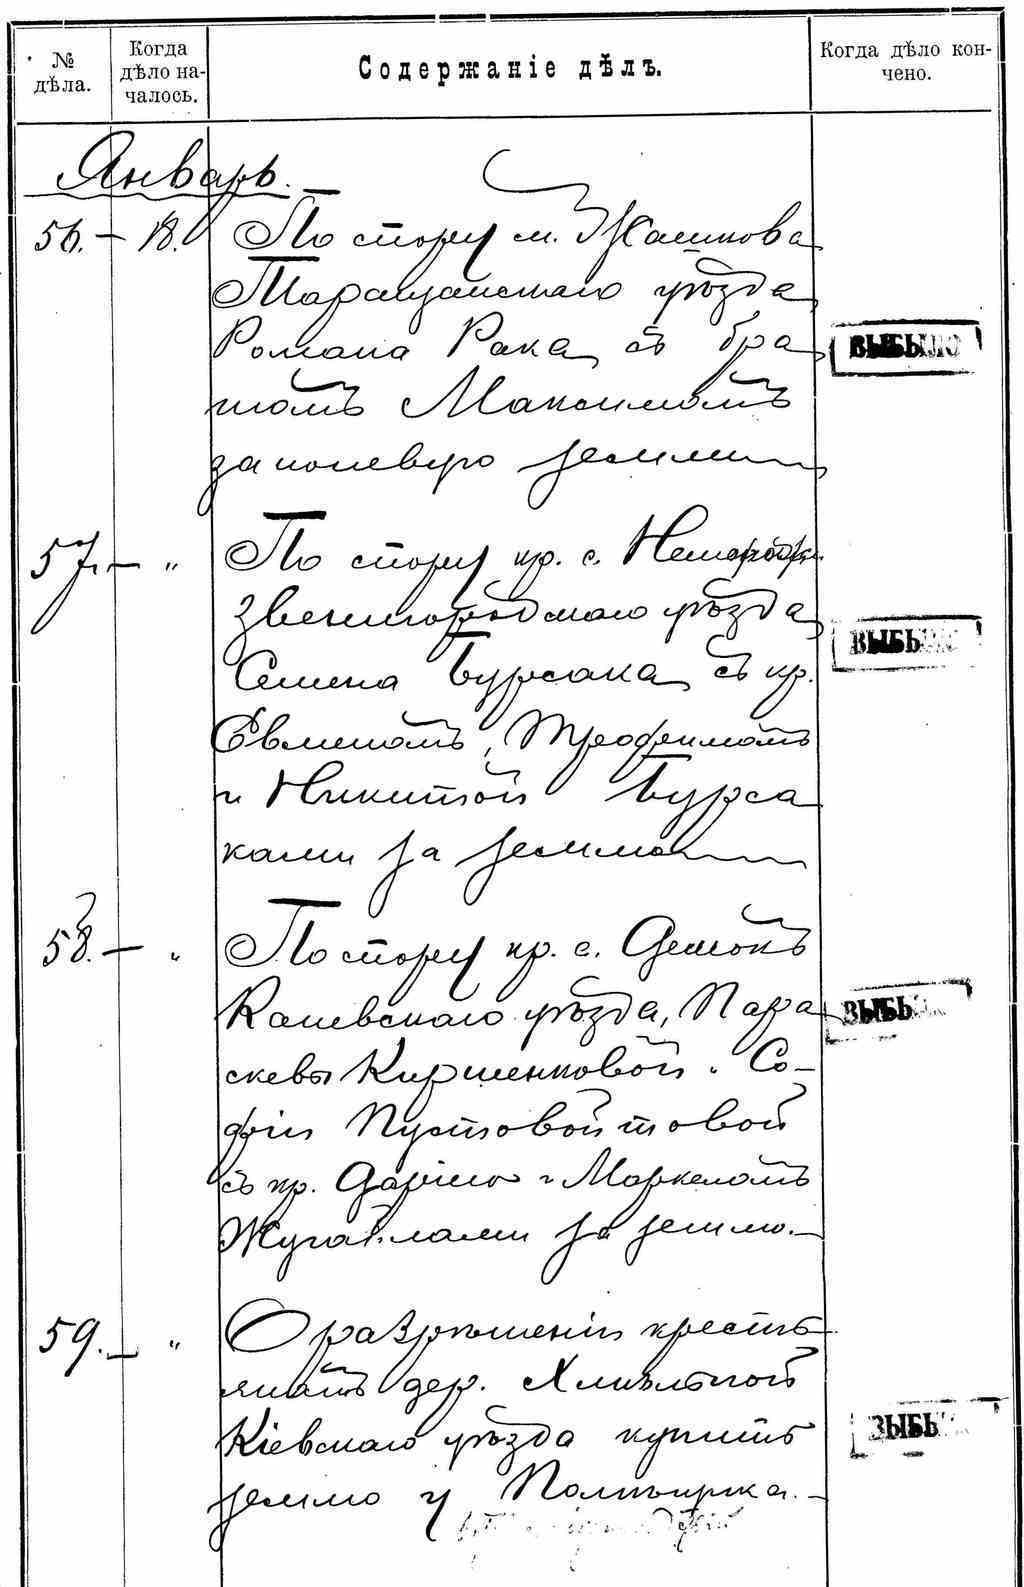 № дѣла.
Когда дѣло началось.
Содержаніе дѣлъ.
Когда дѣло кончено.
Январь.
56. — 18. По спору м. Жашкова
Таращанскаго уѣзда
Романа Рака съ бра
томъ Максимомъ
за полевую землю
ВЫБЫЛО
57. — " По спору кр. с.
Звенигородскаго уѣзда
Семена Бурсака съ кр.
Евменомъ, Трофимомъ
и Никитой Бурса
ками за землю
ВЫБЫЛО
58. — " По спору кр. с.
Каневскаго уѣзда, Пара
скевы Кириенковой и Со-
фіи Пустовойтовой
съ кр. Даріею и Маркеломъ
за землю. —
ВЫБЫ
59. — " О разрѣшеніи кресть
янамъ дер.
Кіевскаго уѣзда купить
землю у
ВЫБЫ